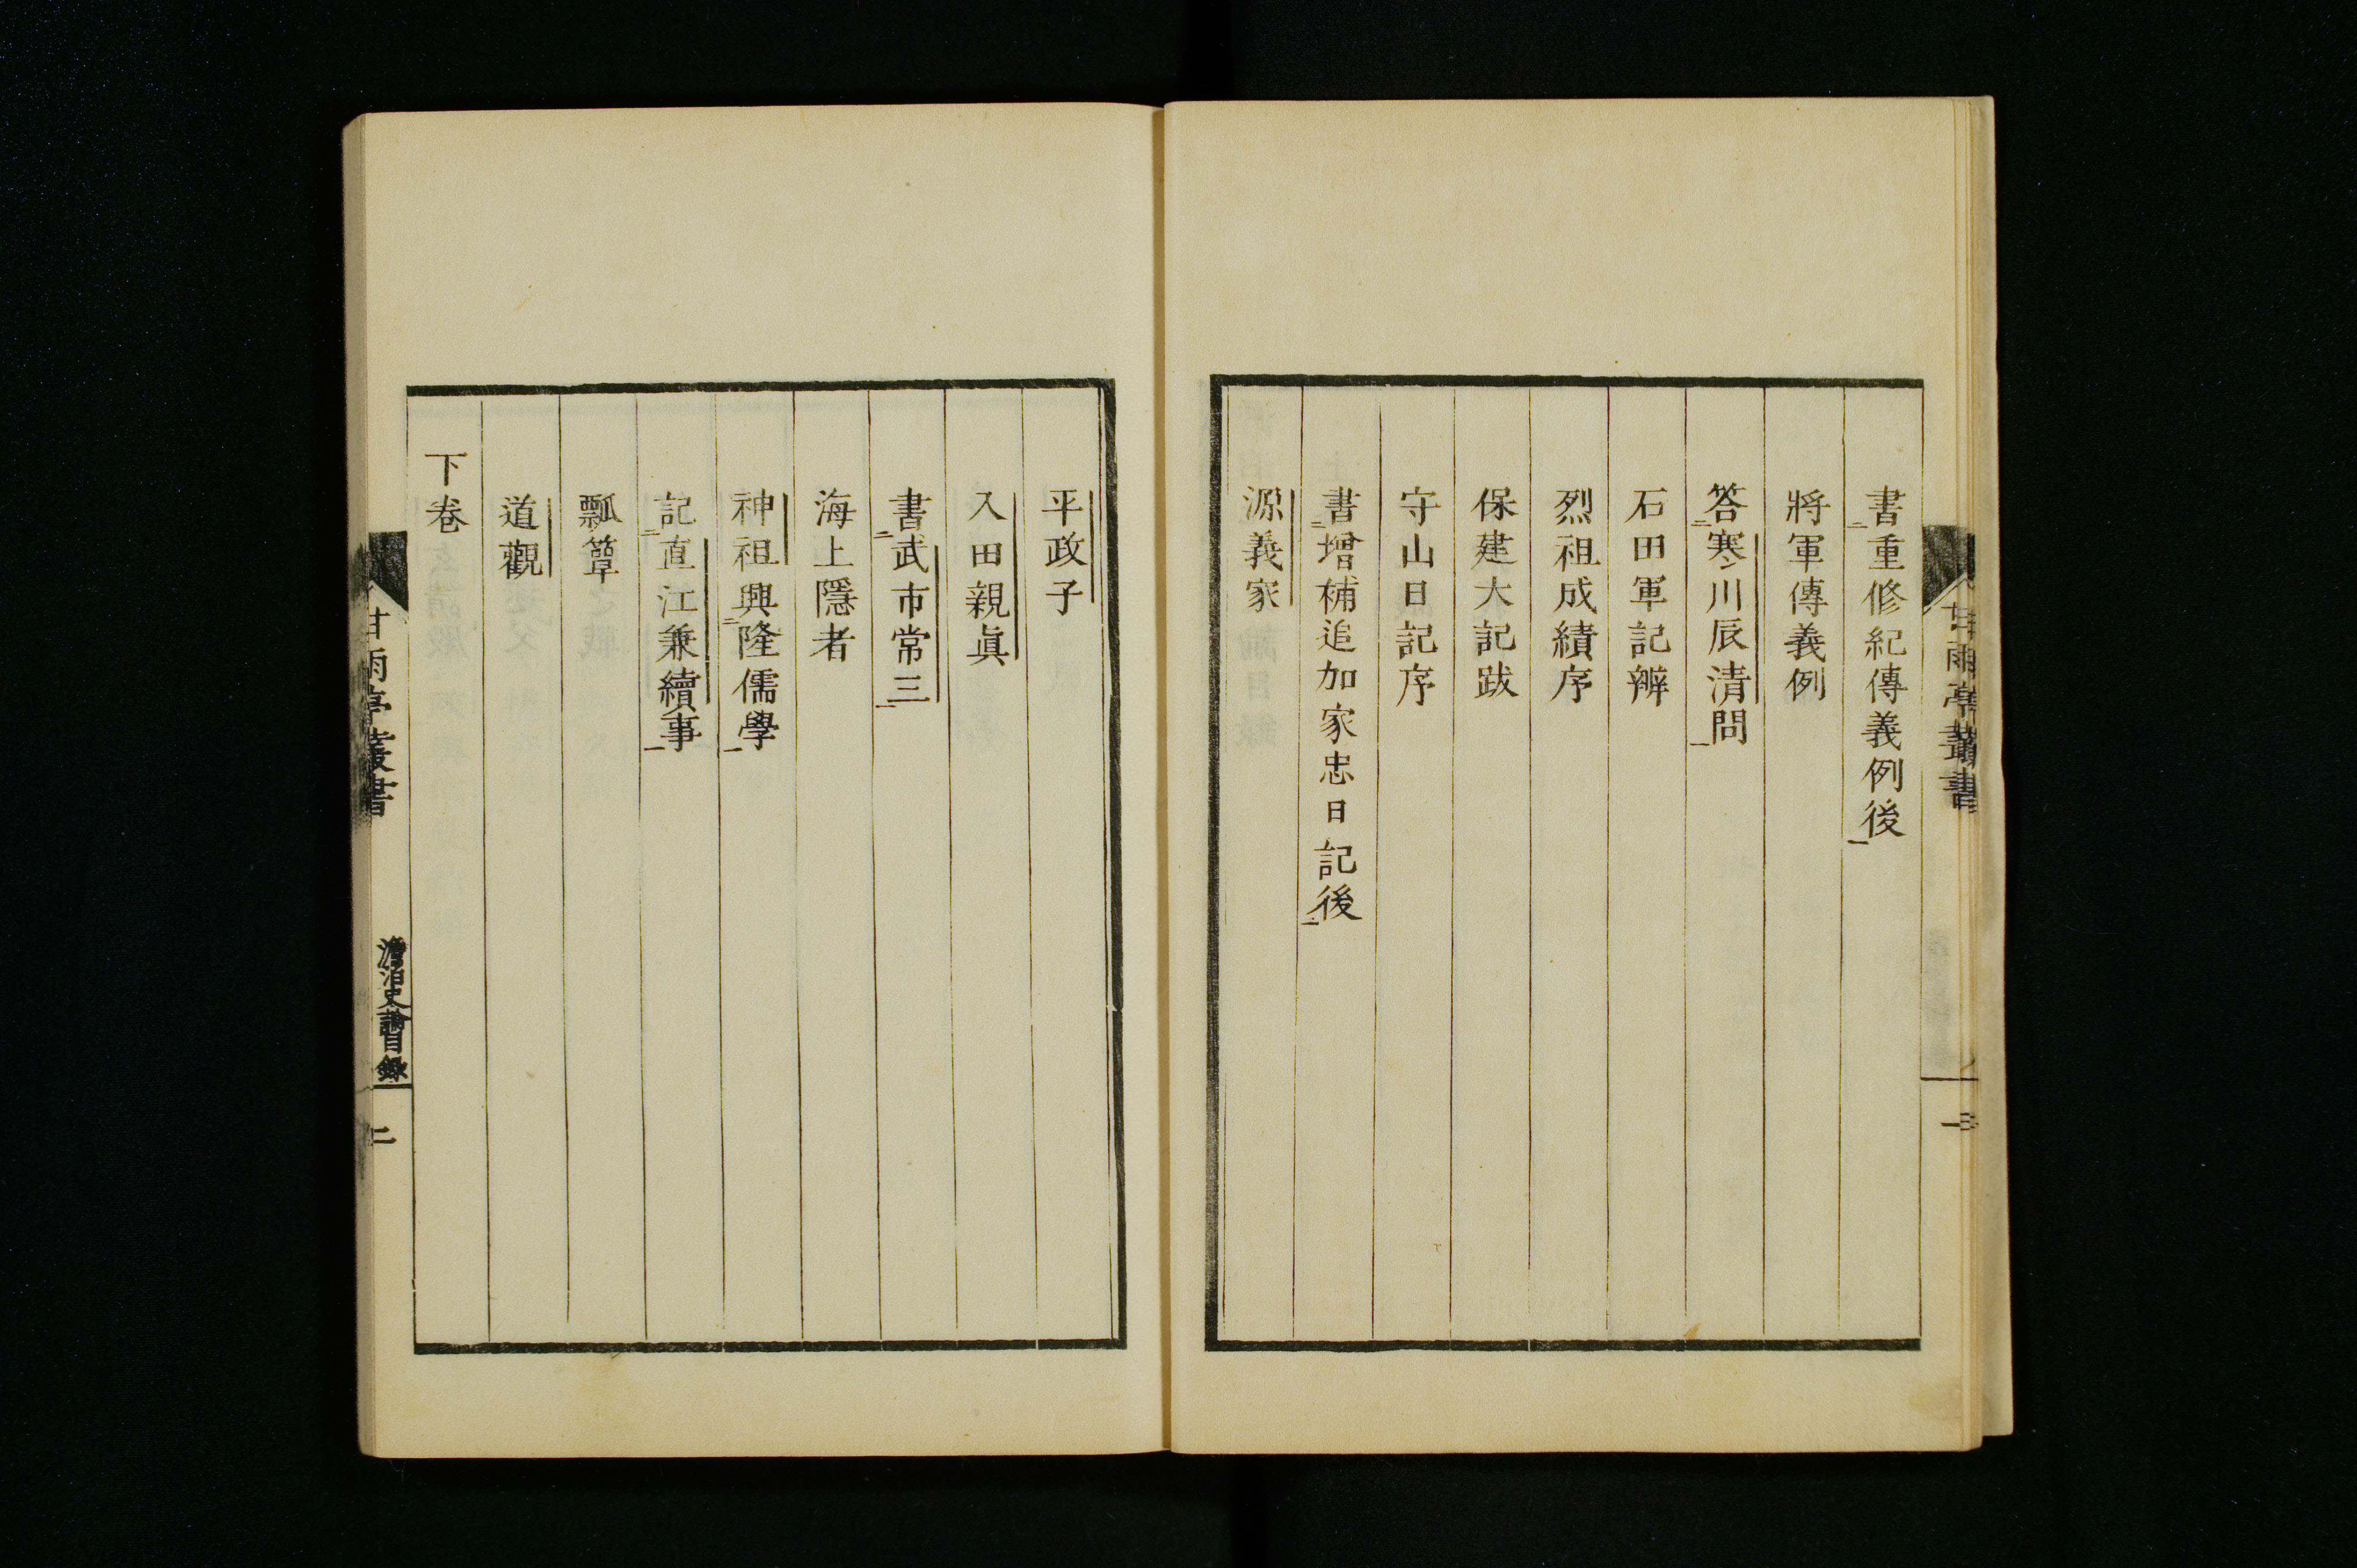 書㆓重修紀傳義例後㆒
將軍傳義例
答㆓寒川辰清問㆒
石田軍記辨
烈祖成績序
保建大記跋
守山日記序
書㆓增補追加家忠日記後㆒
源義家
甘雨亭叢書
平政子
入田親眞
書㆓武市常三㆒
海上隱者
神祖興㆓隆儒學㆒
記㆓直江兼續事㆒
瓢簞
道觀
下卷
甘雨亭叢書
澹泊史論目錄
二